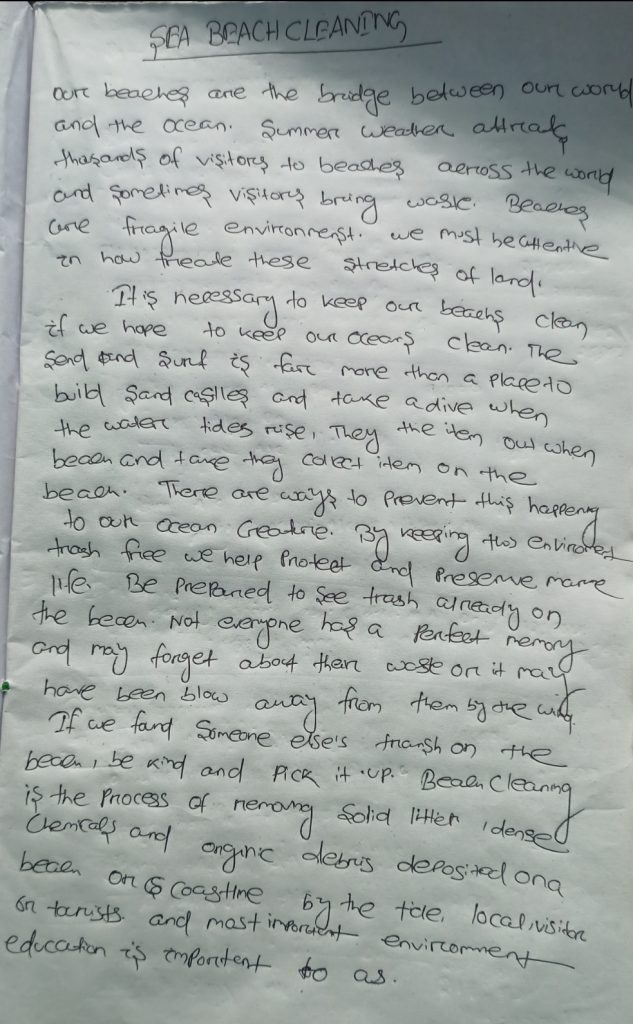 SEA BEACH CLEANING
our beaches are the bridge between our world
and the ocean. Summer weather attracts
thasands of visitors to beaches aeross the world
and sometimes visitors bring waste. Beaches
are fragile environment. we must be attentive
in how treate these stretches of land.
It is necessary to keep our beachs clean
if we hope to keep our oceans clean. The
Send and Surf is far more than a place to
build Sand castles and take a dive when
the water tides rise, They the item out when
beach and take they collect item on the
beach. There are ways to prevent this happeng
to our ocean Creature. By keeping this enviroment
trash free we help Protect and preserve marne
life. Be prepared to see trash already on
the beach. Not everyone has a Perfect memory
and may forget about their waste or it may
have been blow away from them by the wind.
If we fand Someone else's trarsh on the
beach, be kind and Pick it up. Beach Cleaning
is the process of removing Solid litter, dense
Chemicals and organic debris deposited on a
beach or coastline by the tide, local, visitor
or tourists. and most importent environment
education is importent to as.